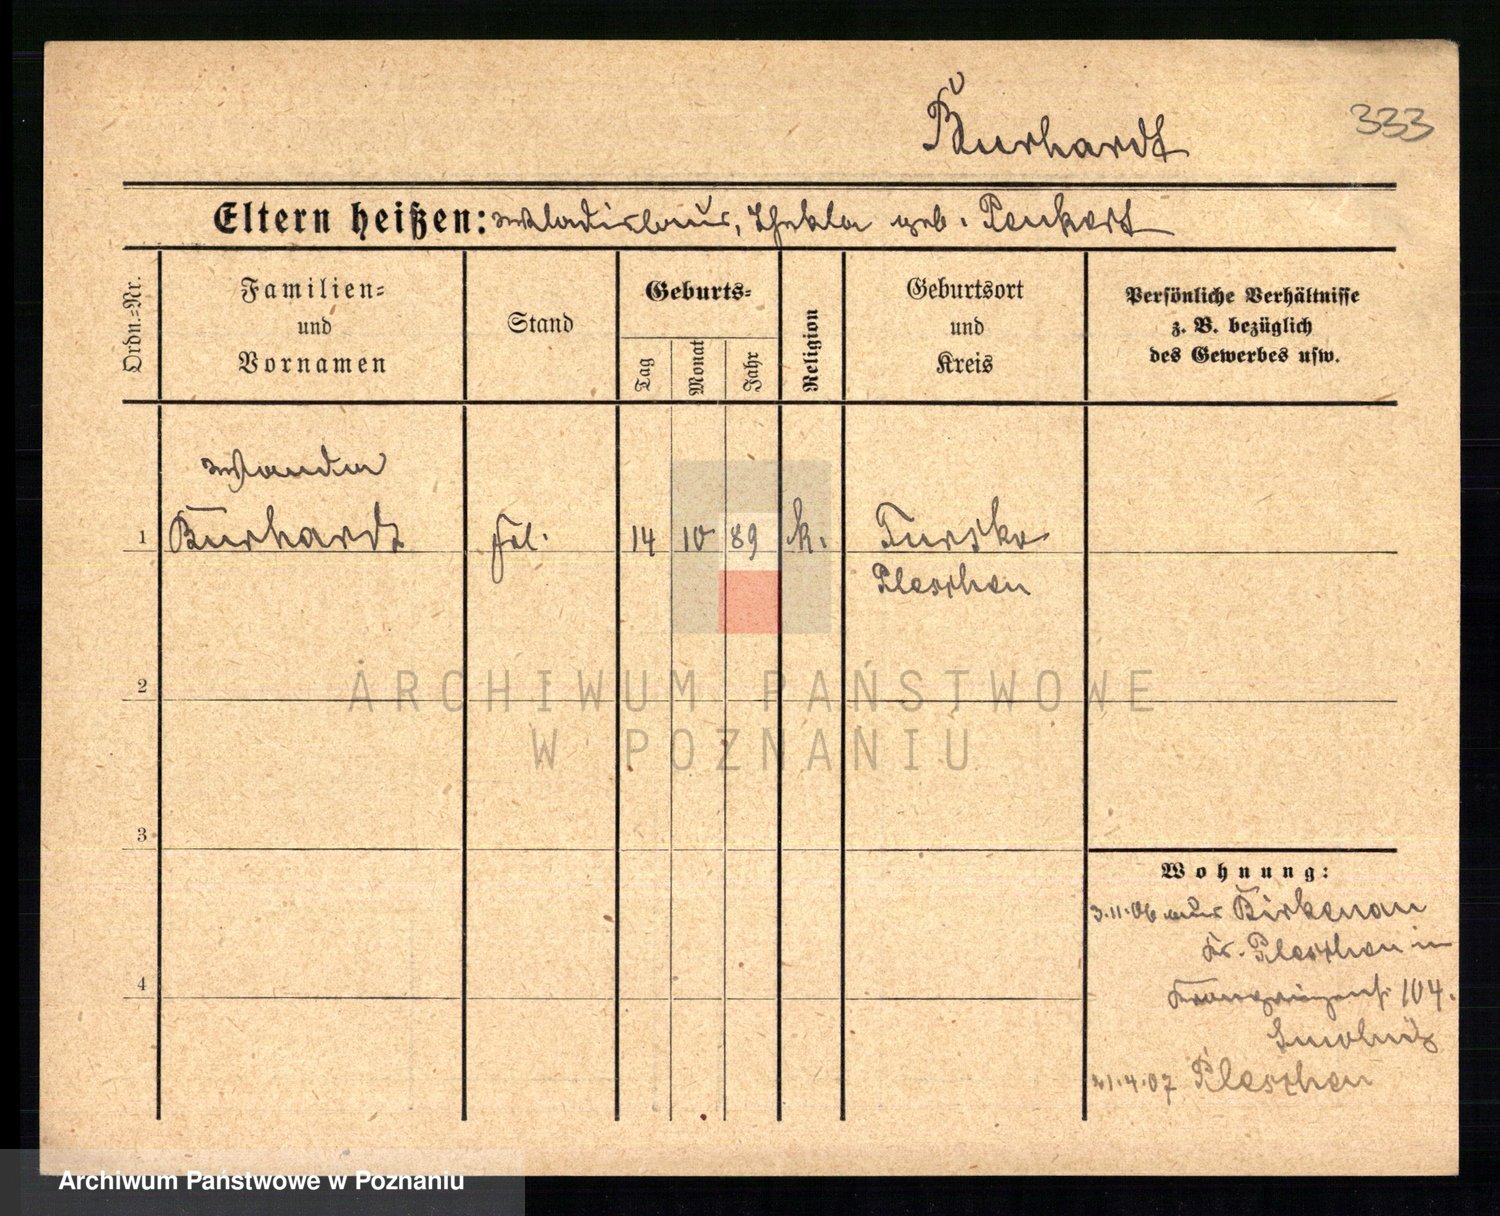 Burhardt
333
Eltern heißen: Wladislaus, Thekla geb. Penkert
Ordn.=Nr.
Familien=
und
Vornamen
Stand
Geburts=
Tag
Monat
Jahr
Religion
Geburtsort
und
Kreis
Persönliche Verhältnisse
z. B. bezüglich
des Gewerbes usw.
Wanda
1 Burhardt Frl. 14 10 89 k. Tursko
Pleschen
2
ARCHIWUM PAŃSTWOWE
W POZNANIU
3
Wohnung:
3.11.06 aus Birkenau
Kr. Pleschen in
4
104.
Smolnitz
21.4.07 Pleschen
Archiwum Państwowe w Poznaniu